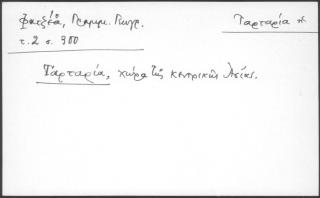 Φατζέα, Γραμμ. Γεωγρ. Ταρταρία
τ. 2 σ. 300
Ταρταρία, χώρα τῆς κεντρικῆς Ἀσίας.